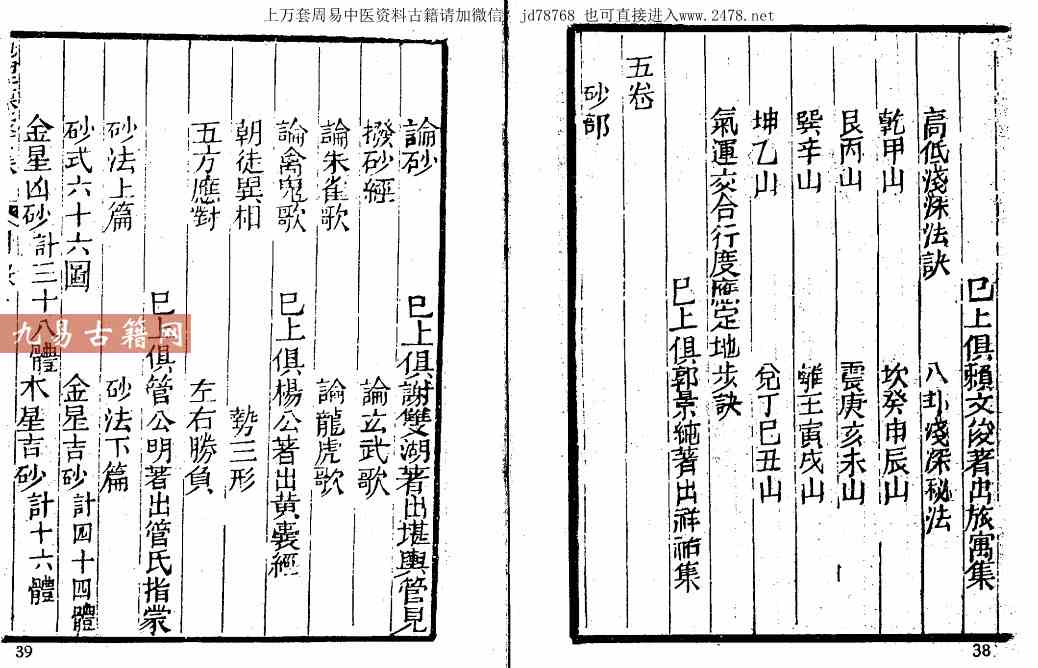 上万套周易中医资料古籍请加微信: jd78768 也可直接进入www.2478.net
巳上俱賴文俊著出旅寓集
高低淺深法訣 八卦淺深秘法
乾甲山 坎癸申辰山
艮丙山 震庚亥未山
巽辛山 離壬寅戌山
坤乙山 兌丁巳丑山
氣運交合行度應定地步訣
巳上俱郭景純著出祥祐集
五卷
砂部
38
巳上俱謝雙湖著出堪輿管見
論砂
撥砂經 論玄武歌
論朱雀歌 論龍虎歌
巳上俱楊公著出黃囊經
論禽鬼歌
朝徒異相 勢三形
五方應對 左右勝負
巳上俱管公明著出管氏指蒙
砂法上篇 砂法下篇
砂式六十六圖 金星吉砂計四十四體
金星凶砂計三十八體 木星吉砂計十六體
39
九易古籍网